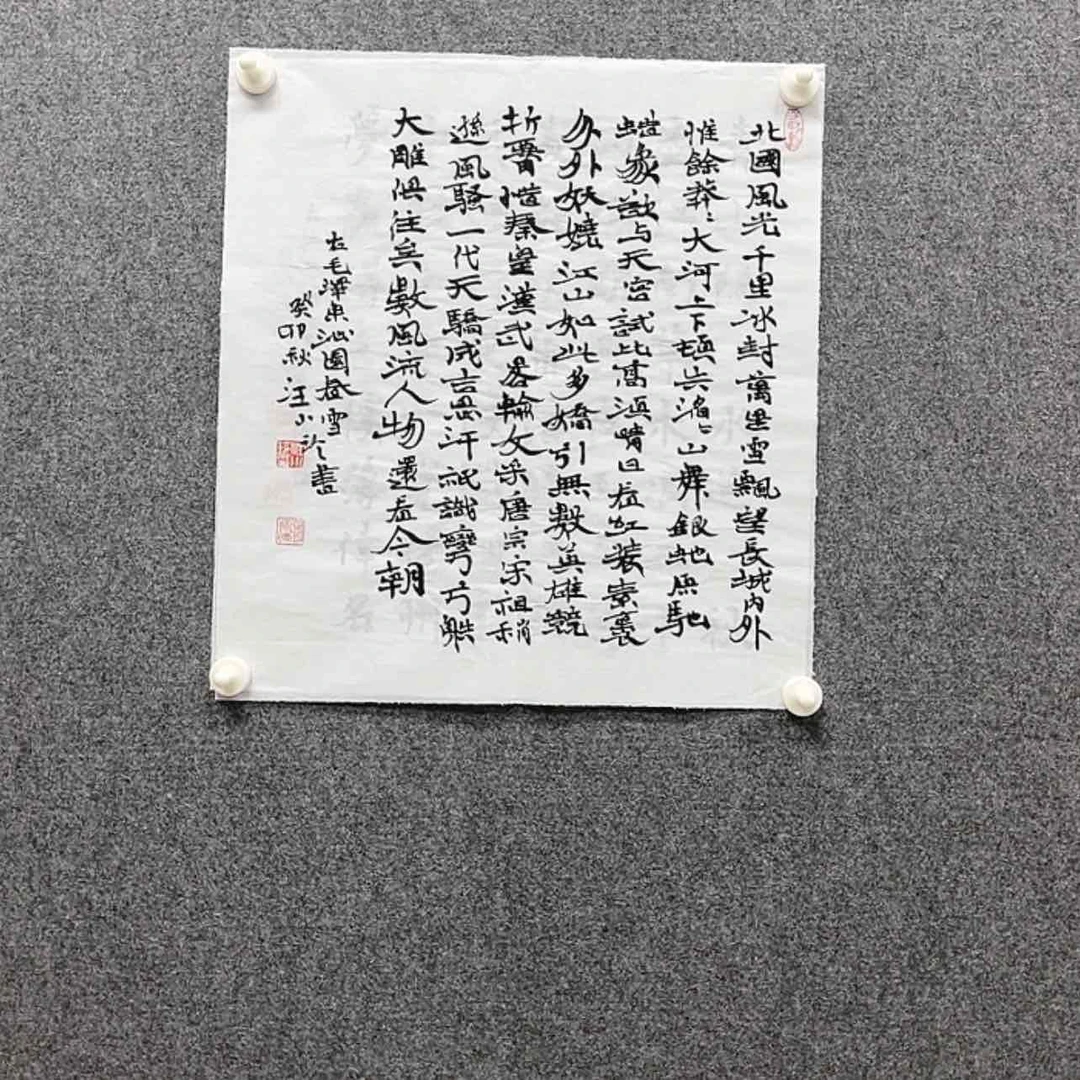 北國風光千里冰封萬里雪飄望長城内外
惟餘莽〻大河上下頓失滔〻山舞銀蛇原馳
蠟象欲与天宫試比高須晴日看紅装素裹
分外妖嬈江山如此多嬌引無數英雄競
折腰惜秦皇漢武畧輸文采唐宗宋祖稍
遜風騷一代天驕成吉思汗祇識彎弓射
大雕俱往矣數風流人物還看今朝
右毛澤東沁園春雪
癸卯秋汪小玲書